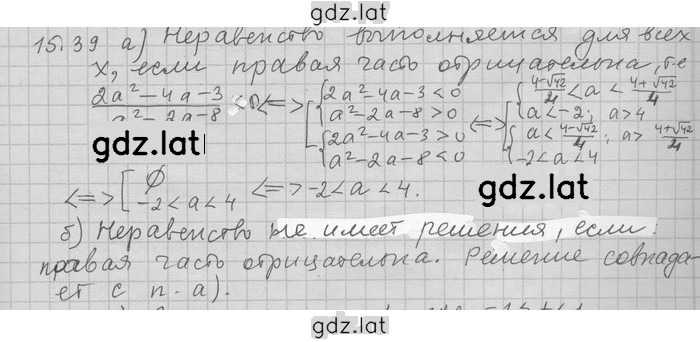 gdz.lat
15.39 а) Неравенство выполняется для всех
x, если правая часть отрицательна, т.е
(2a²-4a-3)/(a²-2a-8) <0 <=> [ { 2a²-4a-3<0 ; a²-2a-8>0 } { 2a²-4a-3>0 ; a²-2a-8<0 } <=> [ { (4-√42)/4 < a < (4+√42)/4 ; a<-2; a>4 } { a< (4-√42)/4 ; a> (4+√42)/4 ; -2<a<4 }
gdz.lat
gdz.lat
<=> [ ∅ ; -2<a<4 <=> -2<a<4.
б) Неравенство не имеет решения, если
правая часть отрицательна. Решение совпада-
ет с п. а).
gdz.lat